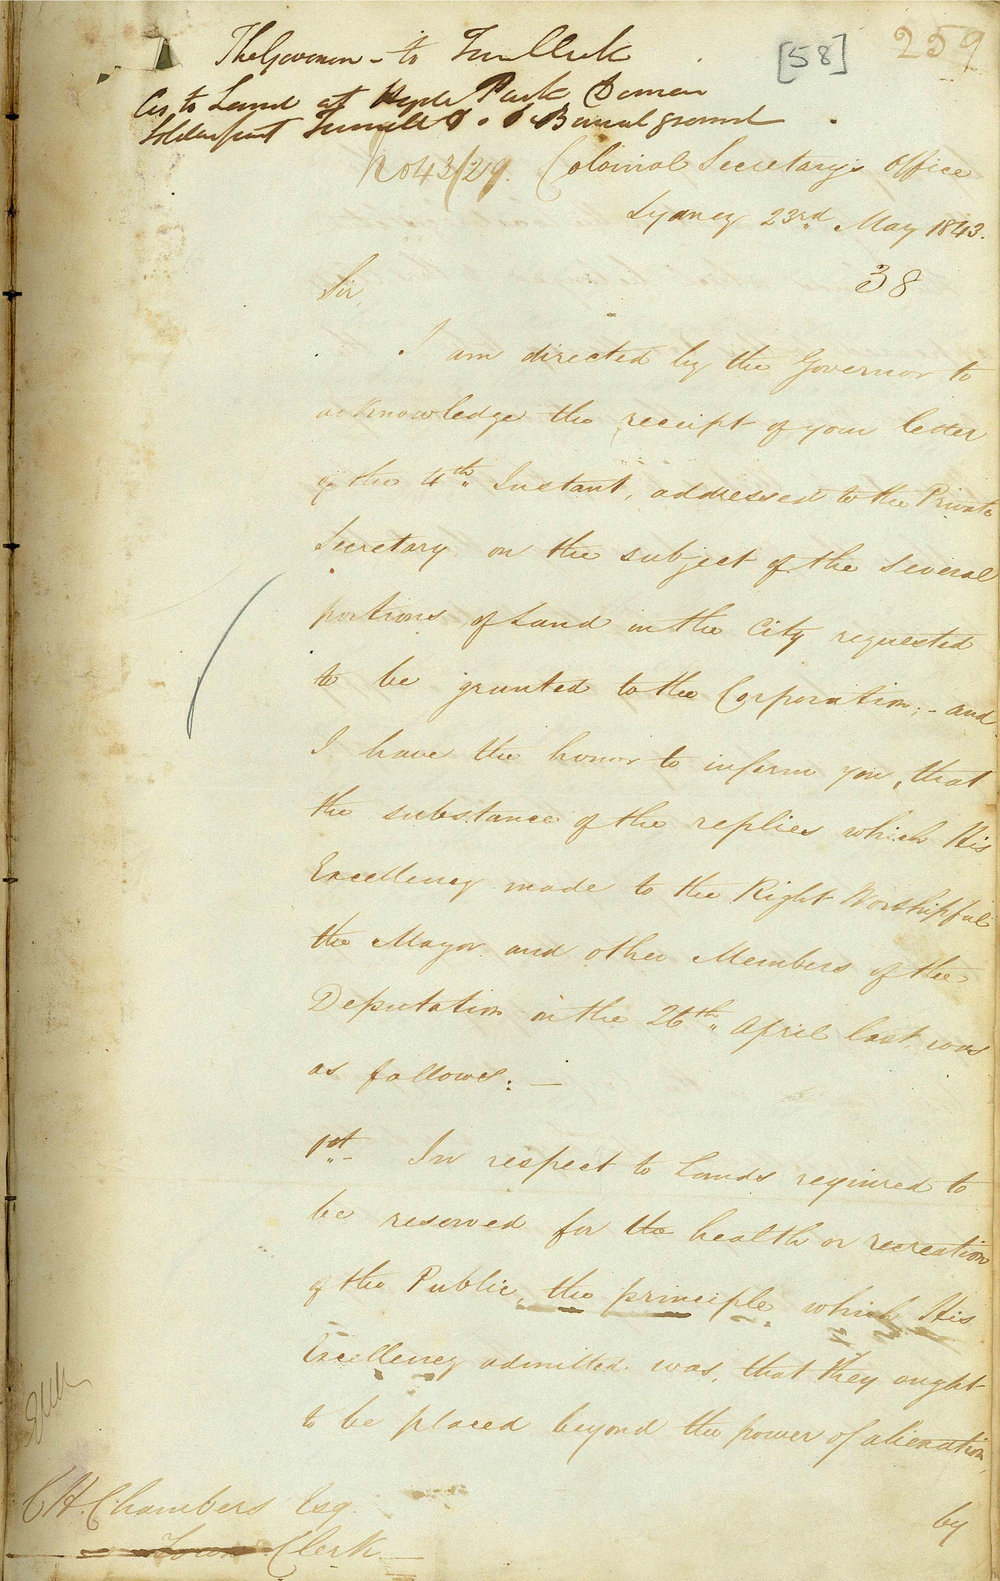 The Governor - to Tn Clerk
[58]
259
As to Land at Hyde Park Domain
Burial ground
No 43/29. Colonial Secretary's Office
Sydney 23rd May 1843.
38
Sir,
I am directed by the Governor to
acknowledge the receipt of your letter
of the 4th Instant, addressed to the Private
Secretary on the subject of the several
portions of Land in the City requested
to be granted to the Corporation; - and
I have the honor to inform you, that
the substance of the replies which His
Excellency made to the Right Worshipful
the Mayor and other Members of the
Deputation on the 26th April last, was
as follows: -
1st - In respect to Lands required to
be reserved for the health or recreation
of the Public, the principle which His
Excellency admitted was, that they ought
to be placed beyond the power of alienation,
by
C H. Chambers Esq
Town Clerk